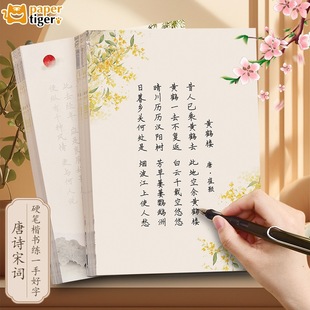 paper
tiger
黄鹤楼
唐·崔颢
昔人已乘黄鹤去
此地空余黄鹤楼
黄鹤一去不复返
白云千载空悠悠
晴川历历汉阳树
芳草萋萋鹦鹉洲
日暮乡关何处是
烟波江上使人愁
硬笔楷书练一手好字
唐诗宋词